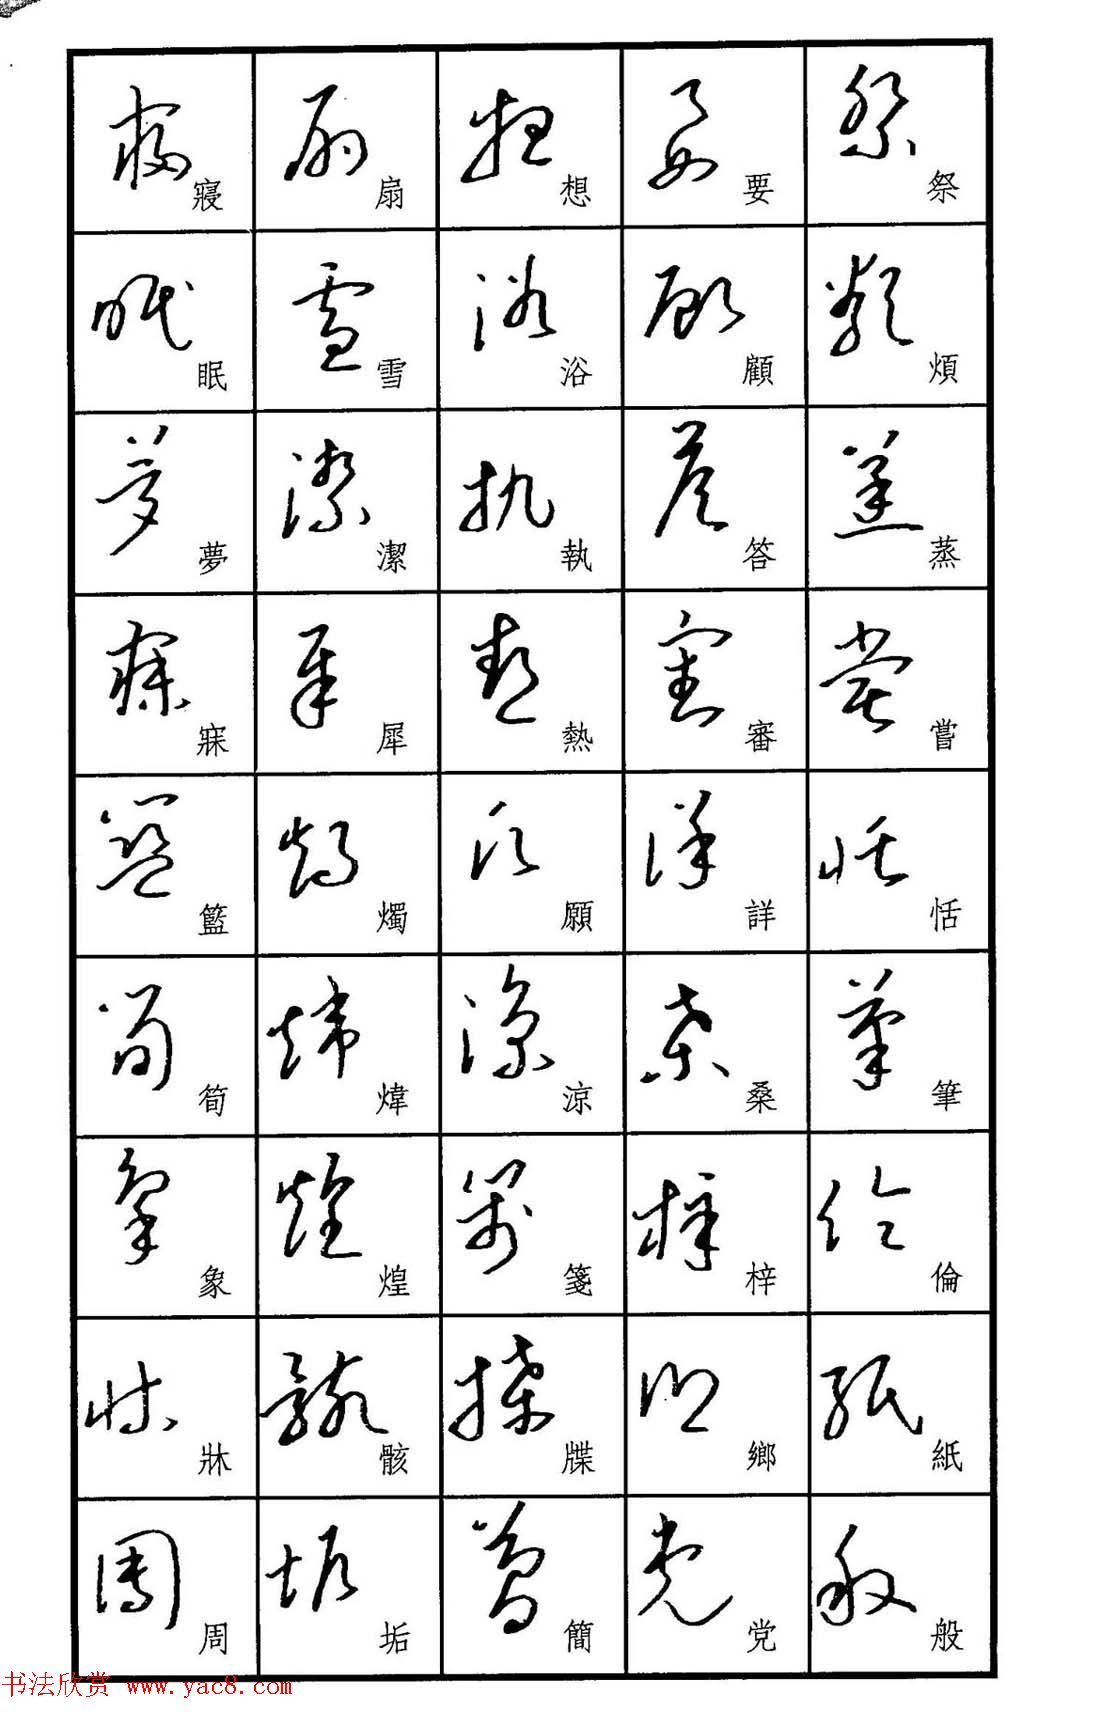 祭煩蒸嘗恬筆倫紙般
要顧答審詳桑梓鄉党
想浴執熱願涼箋牒簡
扇雪潔犀燭煒煌骸垢
寢眠夢寐籃筍象牀周
书法欣赏 www.yac8.com